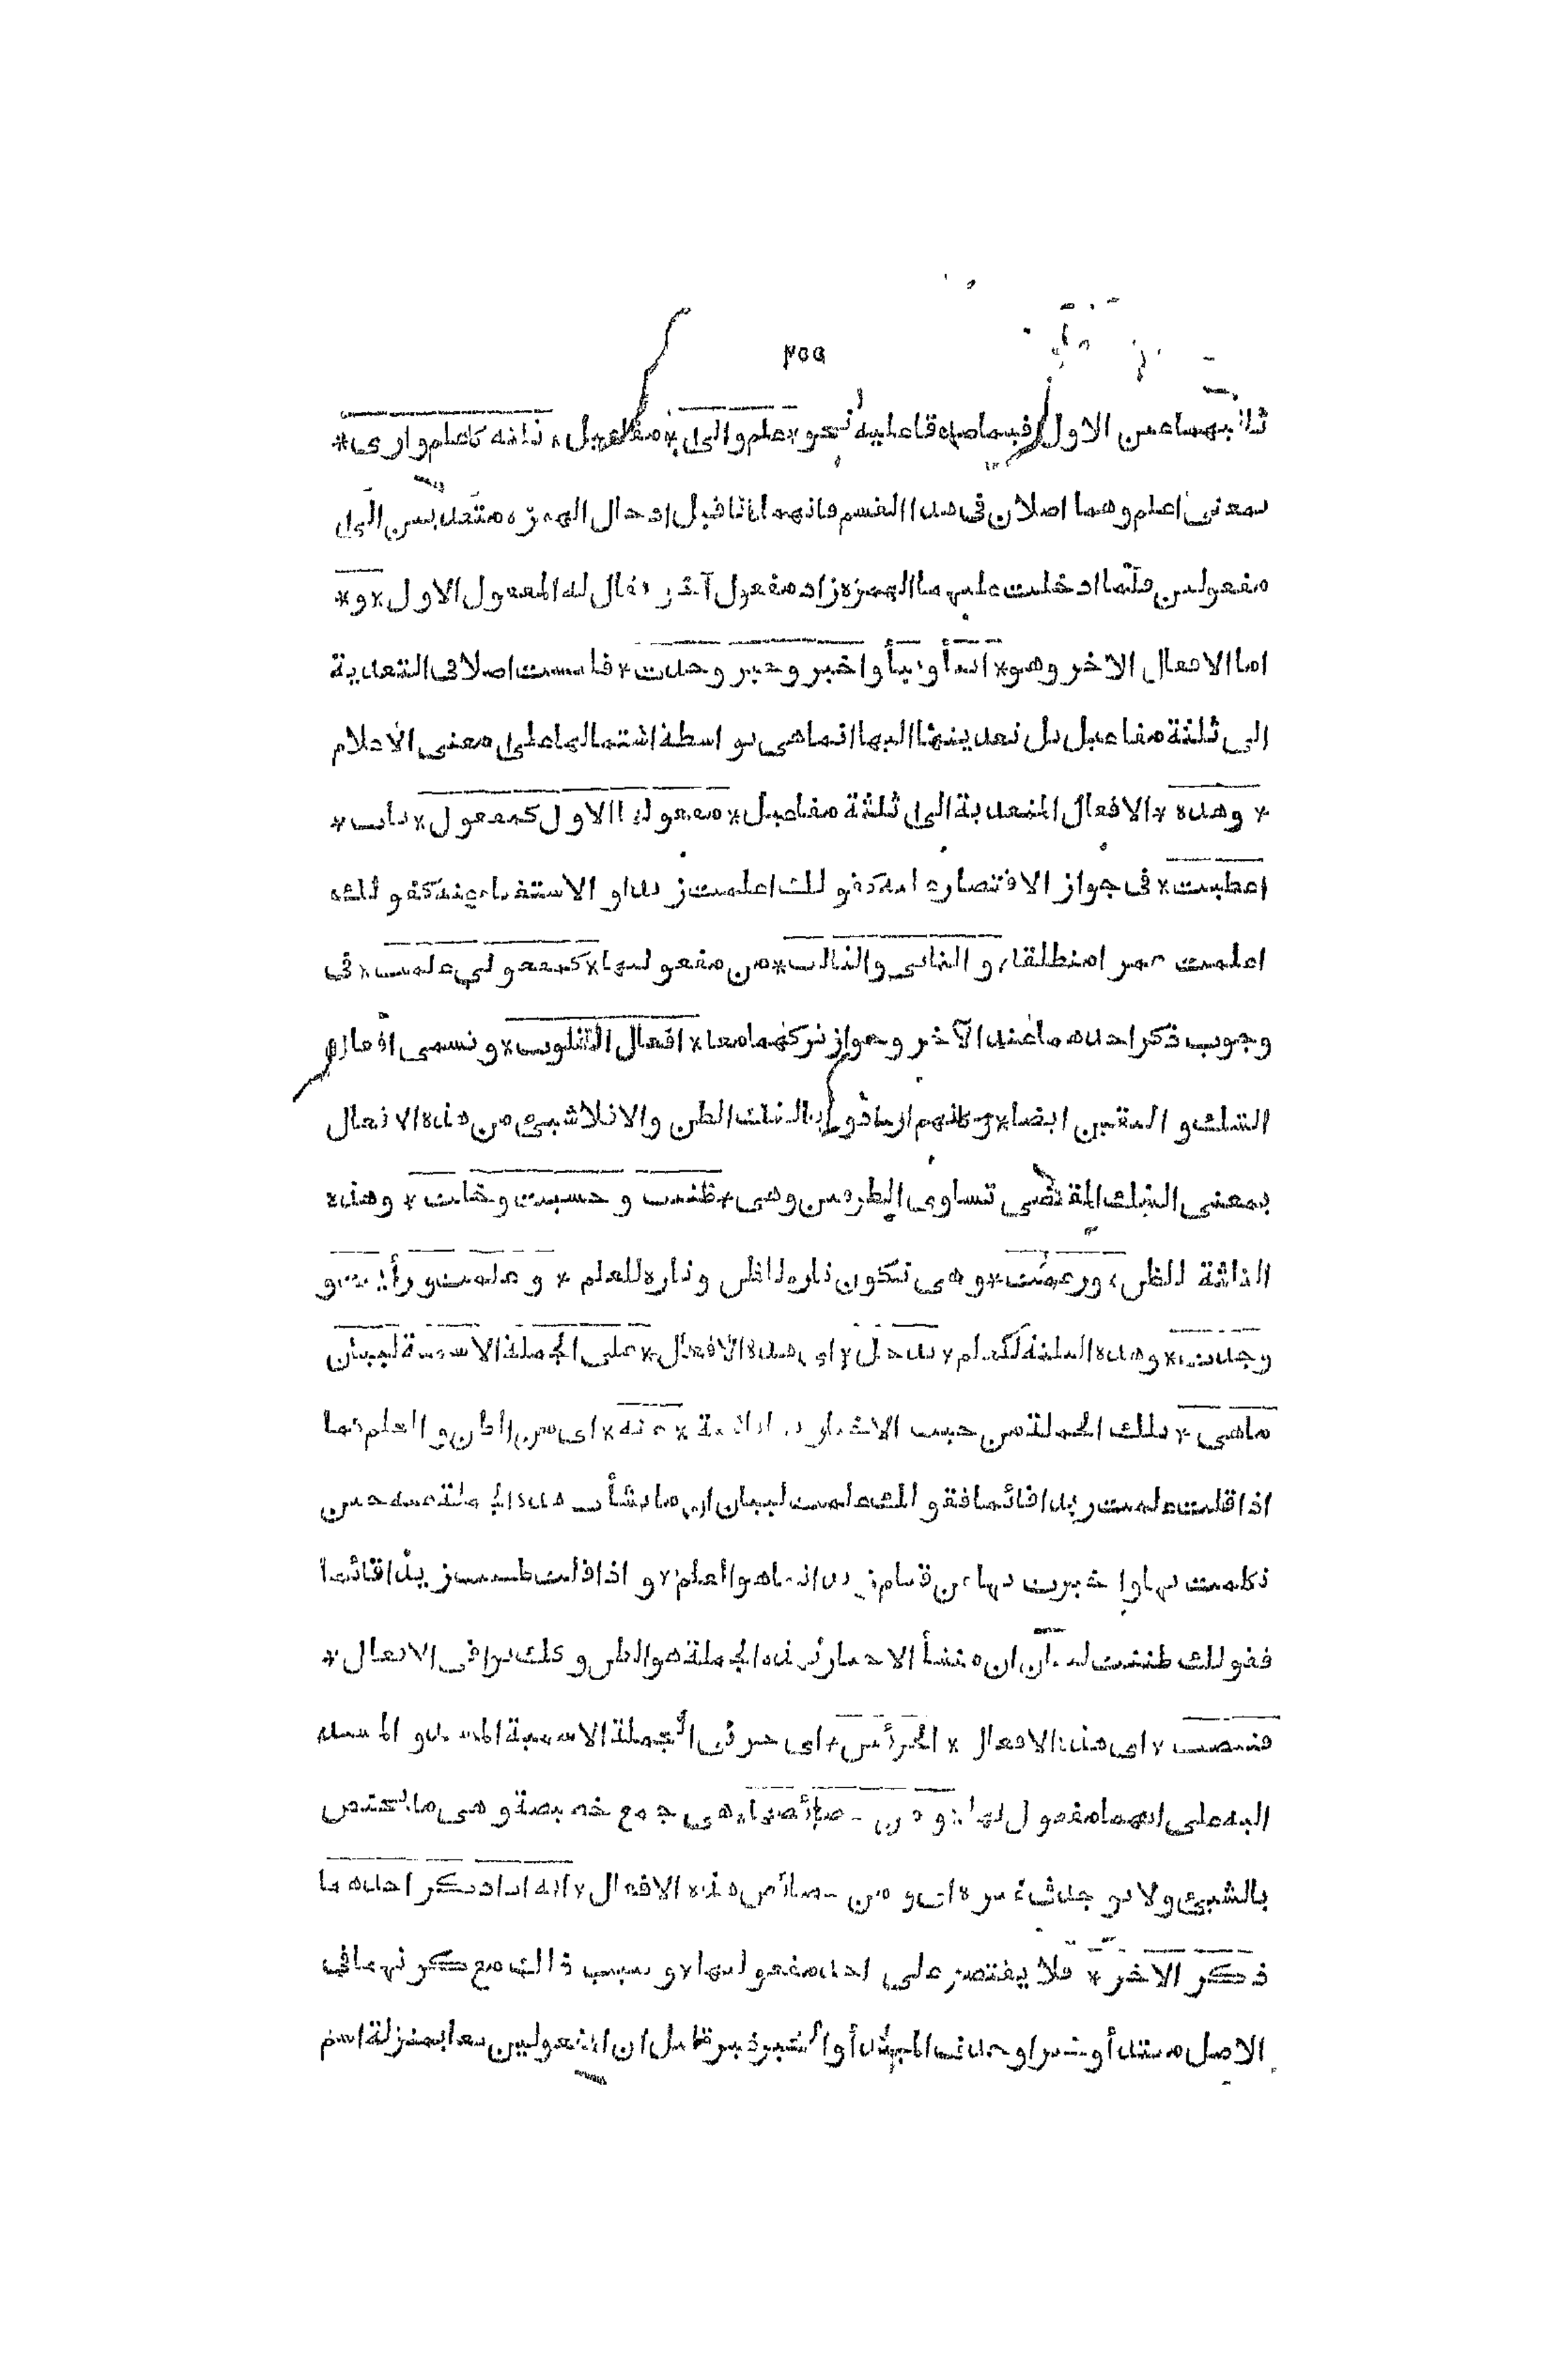 ٢٥٥
ثانيهما عين الاول فيما صدقا عليه نحو * علم والى * مفاعيل * ثلثة كاعلم وارى *
بمعنى اعلم وهما اصلان فى هذا القسم فانهما كانا قبل ادخال الهمزة متعديين الى
مفعولين فلما ادخلت عليهما الهمزة زاد مفعول آخر يقال له المفعول الاول * و *
اما الافعال الاخر وهو * انبأ ونبأ واخبر وخبر وحدث * فليست اصلا فى التعدية
الى ثلثة مفاعيل بل تعديتها اليها انما هى بواسطة اشتمالها على معنى الاعلام
* وهذه * الافعال المتعدية الى ثلثة مفاعيل * مفعولها الاول كمفعول * باب *
اعطيت * فى جواز الاقتصار عليه كقولك اعلمت زيدا و الاستغناء عنه كقولك
اعلمت عمرا منطلقا * و الثانى والثالث * من مفعوليها * كمفعولي علمت * فى
وجوب ذكر احدهما عند الآخر وجواز تركهما معا * افعال القلوب * وتسمى افعال
الشك و اليقين ايضا * وكانهم ارادوا بالشك الظن والا فلا شيئ من هذه الافعال
بمعنى الشك المقتضى تساوى الطرفين وهى * ظننت و حسبت وخلت * وهذه
الثلثة للظن * وزعمت * وهى تكون تارة للظن وتارة للعلم * و علمت ورأيت و
وجدت * وهذه الثلثة للعلم * تدخل * اى هذه الافعال * على الجملة الاسمية لبيان
ماهى * تلك الجملة من حيث الاخبار بها ناشئة * عنه * اى من الظن و العلم كما
اذا قلت علمت زيدا قائما فقولك علمت لبيان ان ما نشأت هذه الجملة عنه حين
تكلمت بها واخبرت بها عن قيام زيد انما هو العلم * و اذا قلت ظننت زيدا قائما
فقولك ظننت لبيان ان منشأ الاخبار بهذه الجملة هو الظن وكذلك بواقى الافعال *
فتنصب * اى هذه الافعال * الجزئين * اى جزئى الجملة الاسمية المسند و المسند
اليه على انهما مفعولان لها * و من خصائصها * هى جمع خصيصة وهى ما يختص
بالشيئ ولا يوجد فى غيره اى ومن خصائص هذه الافعال * انه اذا ذكر احدهما
ذكر الاخر * فلا يقتصر على احد مفعوليها * و سبب ذالك مع كونهما فى
الاصل مبتدأ وخبرا وحذف المبتدأ والخبر غير قليل ان المفعولين معا بمنزلة اسم